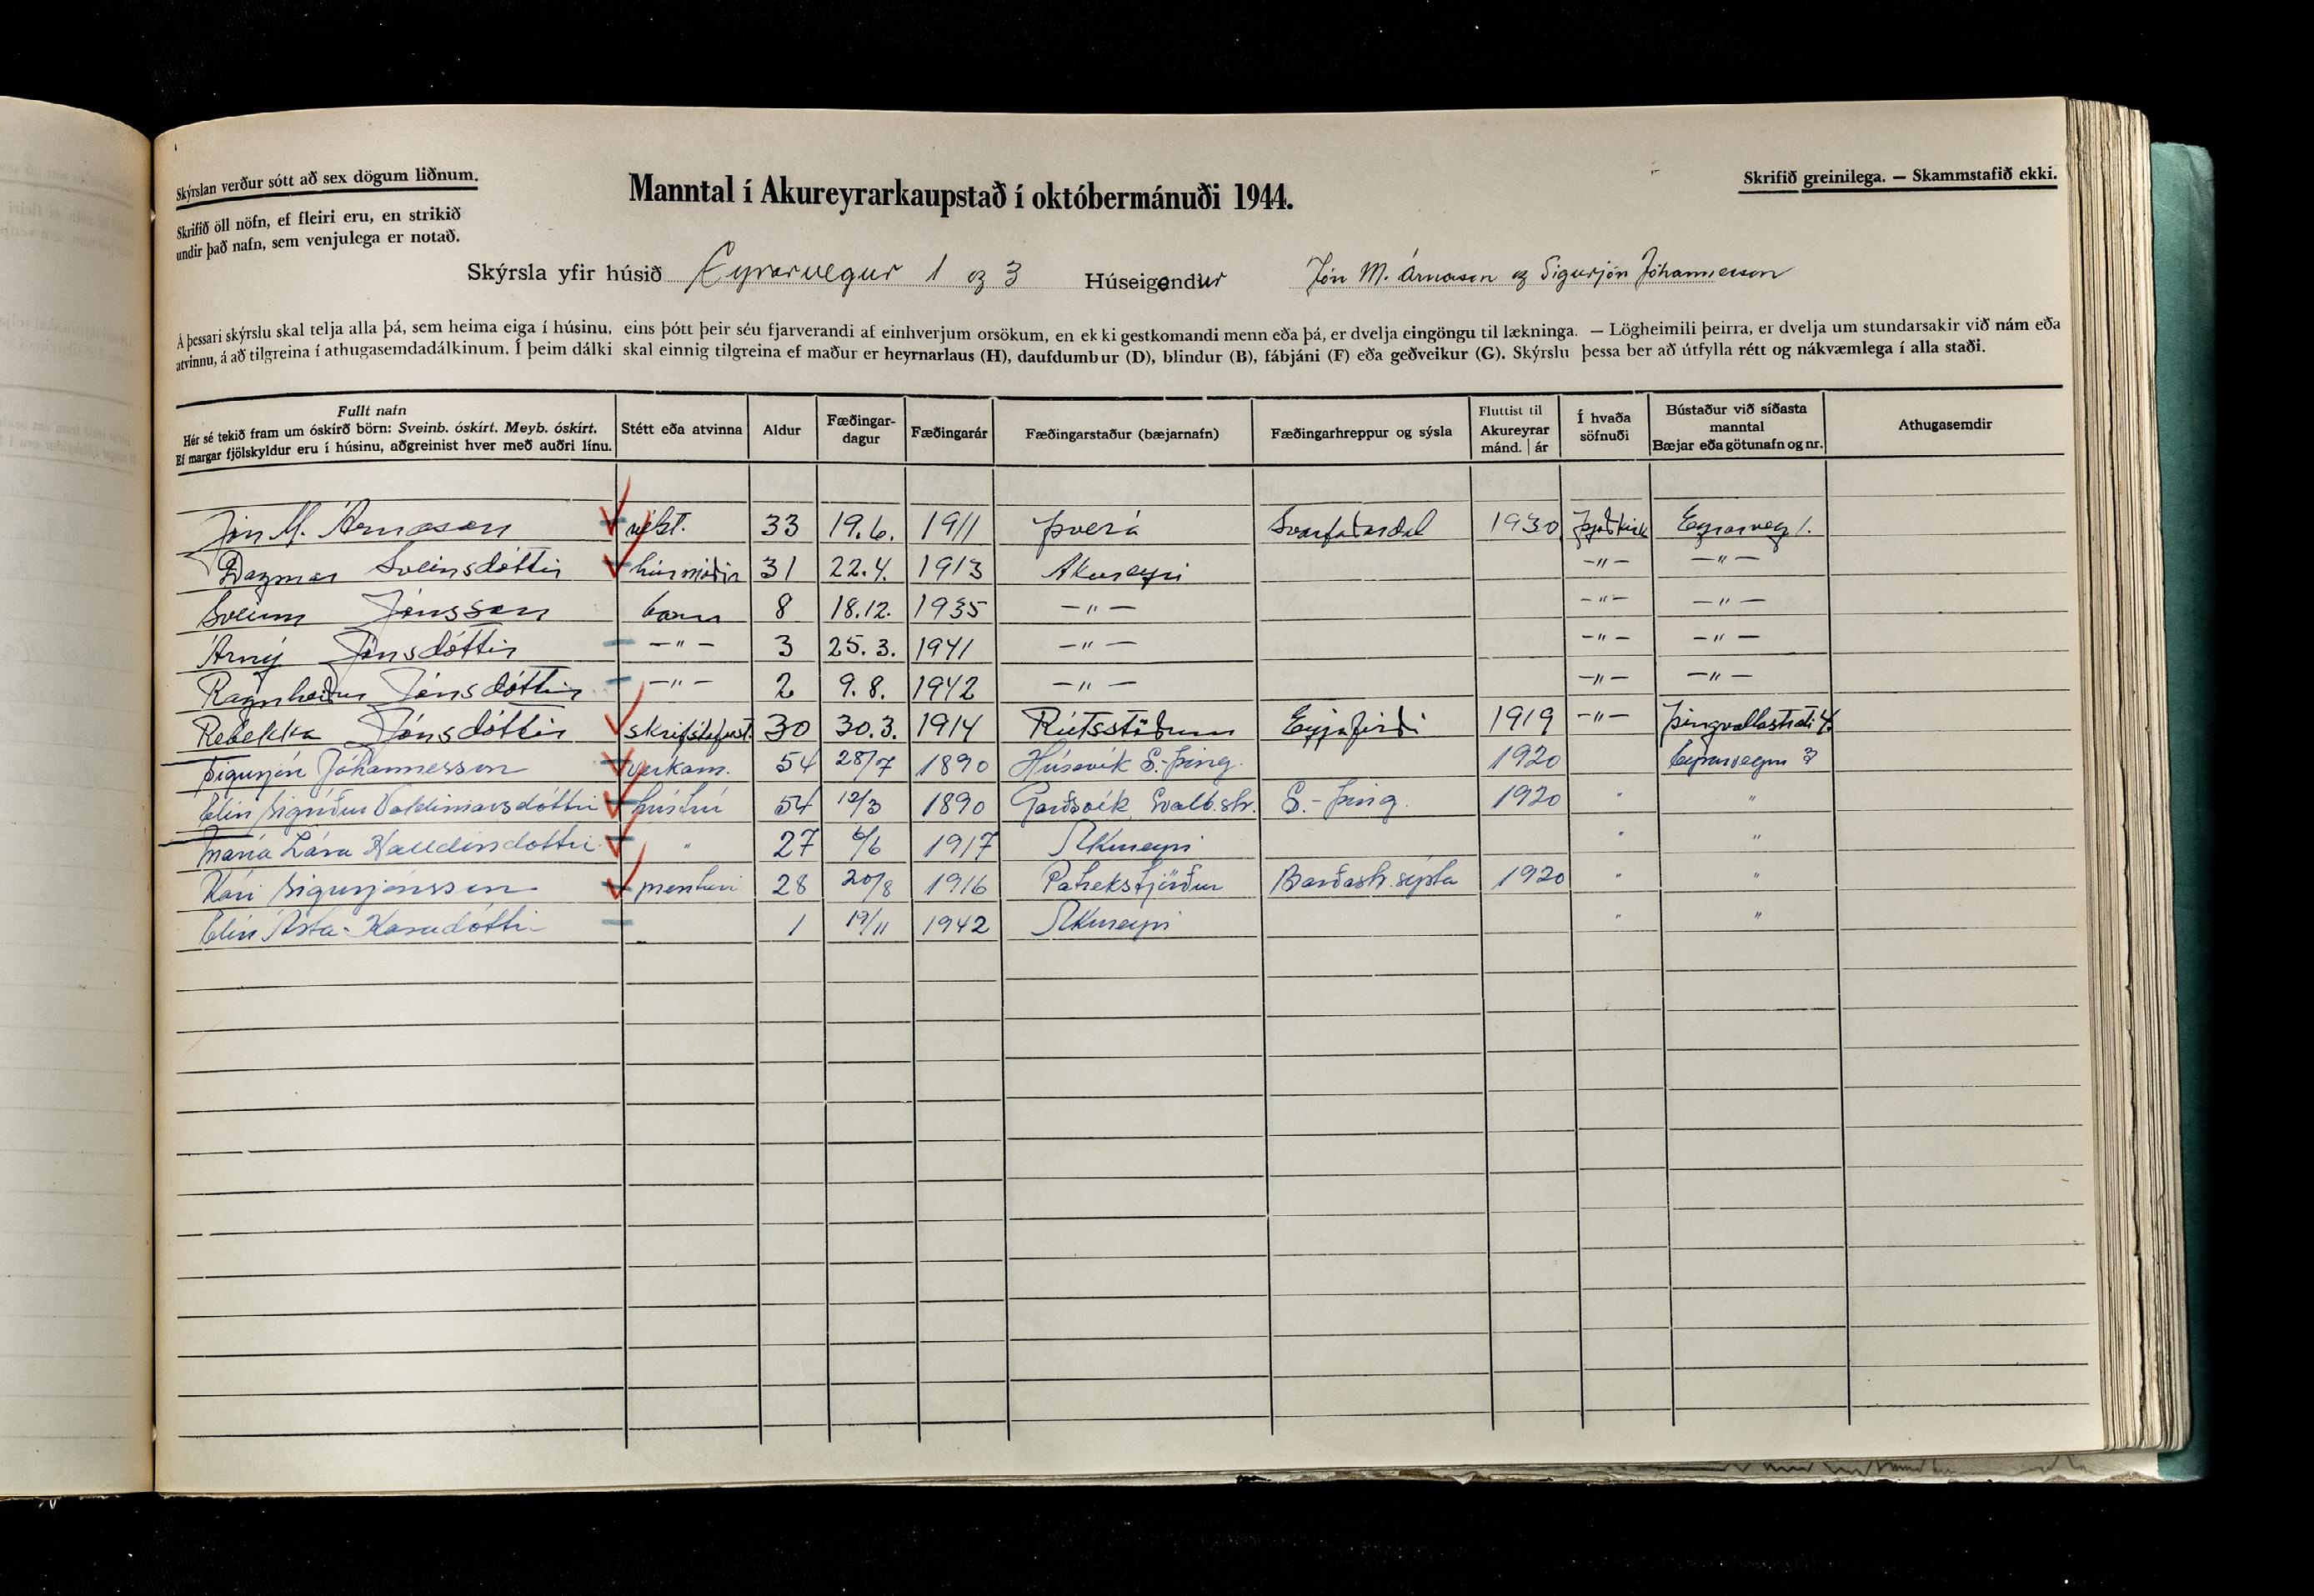 Skýrslan verður sótt að sex dögum liðnum.
Skrifið öll nöfn, ef fleiri eru, en strikið
undir það nafn, sem venjulega er notað.
Manntal í Akureyrarkaupstað í októbermánuði 1944.
Skrifið greinilega. — Skammstafið ekki.
Skýrsla yfir húsið Eyrarvegur 1 og 3 Húseigendur Jón M. Árnason og Sigurjón Jóhannesson
Á þessari skýrslu skal telja alla þá, sem heima eiga í húsinu, eins þótt þeir séu fjarverandi af einhverjum orsökum, en ekki gestkomandi menn eða þá, er dvelja eingöngu til lækninga. — Lögheimili þeirra, er dvelja um stundarsakir við nám eða
atvinnu, á að tilgreina í athugasemdadálkinum. Í þeim dálki skal einnig tilgreina ef maður er heyrnarlaus (H), daufdumbur (D), blindur (B), fábjáni (F) eða geðveikur (G). Skýrslu þessa ber að útfylla rétt og nákvæmlega í alla staði.
Fullt nafn
Hér sé tekið fram um óskírð börn: Sveinb. óskírt. Meyb. óskírt.
Ef margar fjölskyldur eru í húsinu, aðgreinist hver með auðri línu.
Stétt eða atvinna
Aldur
Fæðingar-
dagur
Fæðingarár
Fæðingarstaður (bæjarnafn)
Fæðingarhreppur og sýsla
Fluttist til
Akureyrar
mánd. | ár
Í hvaða
söfnuði
Bústaður við síðasta
manntal
Bæjar eða götunafn og nr.
Athugasemdir
Jón M. Árnason vélst. 33 19.6. 1911 Þverá Svarfaðardal 1930 Þjóðkirk Eyrarveg 1.
Dagmar Sveinsdóttir húsmóðir 31 22.4. 1913 Akureyri —〃— —〃—
Sveinn Jónsson barn 8 18.12. 1935 —〃— —〃— —〃—
Árný Jónsdóttir —〃— 3 25.3. 1941 —〃— —〃— —〃—
Ragnheiður Jónsdóttir —〃— 2 9.8. 1942 —〃— —〃— —〃—
Rebekka Jónsdóttir skrifstofust. 30 30.3. 1914 Rútsstöðum Eyjafirði 1919 —〃— Þingvallastræti 4
Sigurjón Jóhannesson verkam. 54 28/7 1890 Húsavík S.-Þing. 1920 Eyrarvegur 3
Elín Sigríður Valdimarsdóttir húsfrú 54 12/3 1890 Garðsvík Svalb.str. S.-Þing. 1920 〃 〃
María Lára 〃 27 6/6 1917 Akureyri 〃 〃
Kári Sigurjónsson prentari 28 20/8 1916 Patreksfjörður Barðastr.sýsla 1920 〃 〃
Elín Ásta Káradóttir 1 19/11 1942 Akureyri 〃 〃